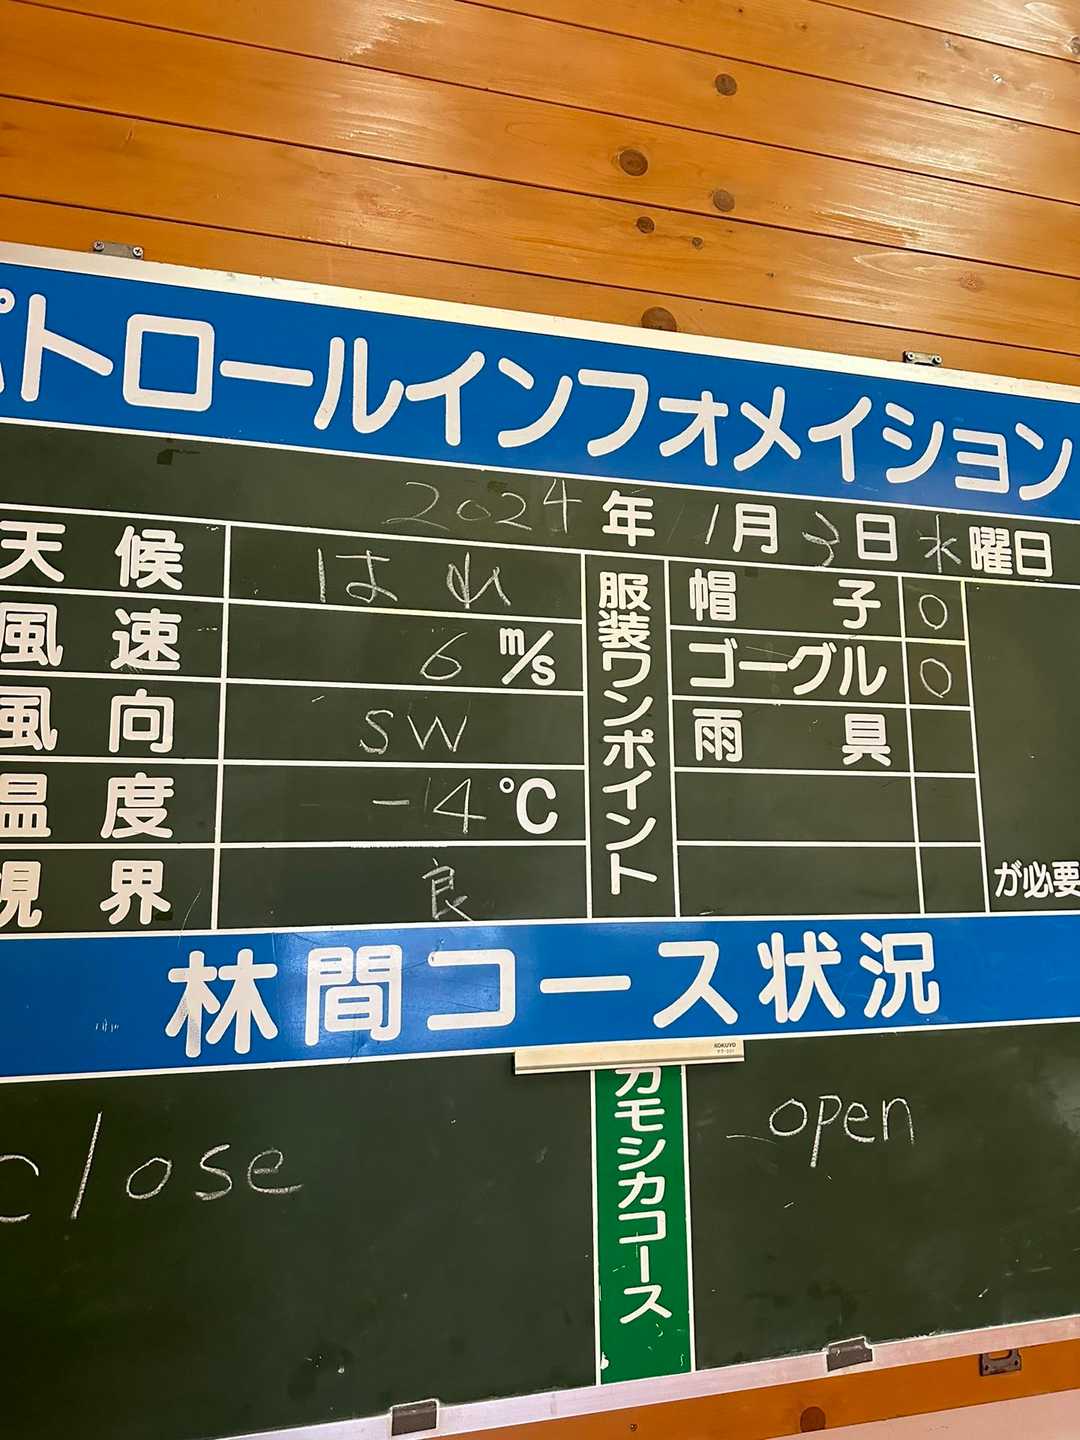 パトロールインフォメイション
2024年 1月3日 水曜日
天候 はれ
風速 6 m/s
風向 SW
温度 -14 ℃
視界 良
服装ワンポイント
帽子 ○
ゴーグル ○
雨具
が必要
林間コース状況
close
カモシカコース
open
KOKUYO